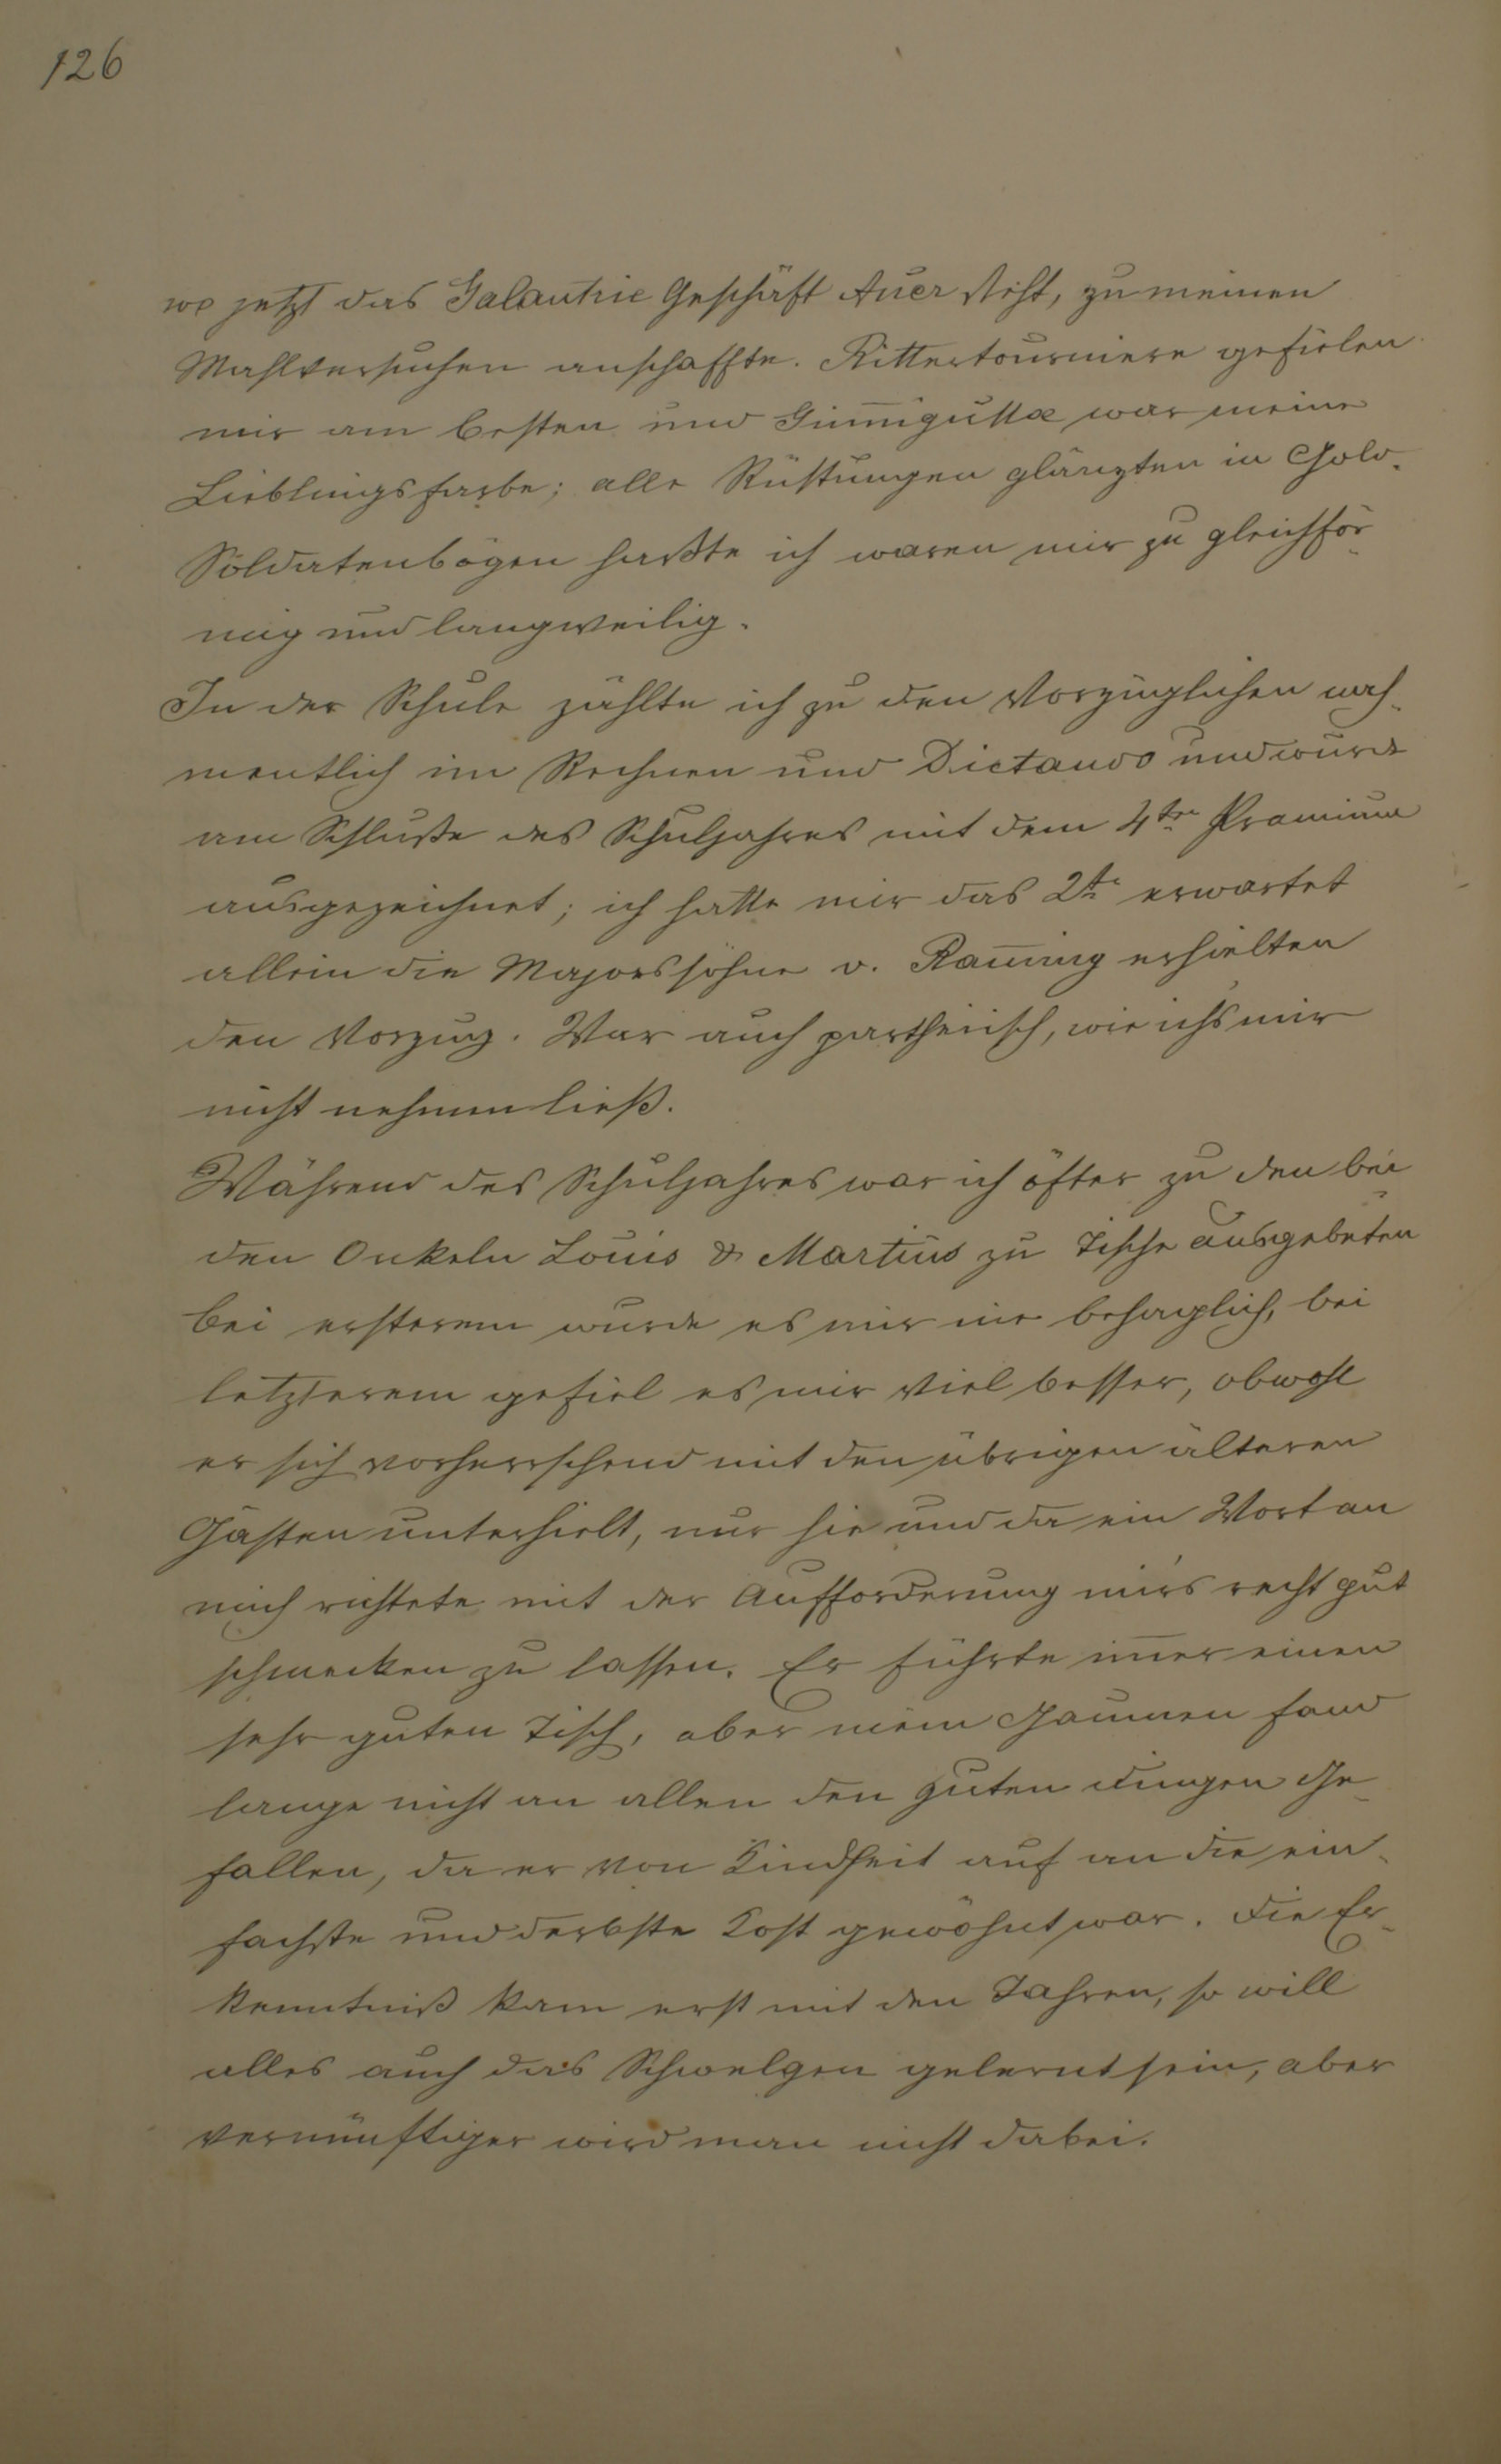 126
wo jetzt das Galantrie Geschäft Auer steht, zu meinen
Mahlversuchen anschaffte. Rittertourniere gefielen
mir am besten und Gum̅igutta war meine
Lieblingsfarbe; alle Rüstungen glänzten in Gold.
Soldatenbögen haßte ich waren mir zu gleichför-
mig und langweilig.
In der Schule zählte ich zu den Vorzüglichen nah-
mentlich im Rechnen und Dictando und wurde
am Schluße des Schuljahres mit dem 4ten Pramium
ausgezeichnet; ich hatte mir das 2te erwartet
allein die Majorssöhne v. Ram̅ing erhielten
den Vorzug. War auch partheiisch, wie ich's mir
nicht nehmen ließ.
Während des Schuljahres war ich öfter zu den bei-
den Onkeln Louis & Martius zu Tische ausgebeten
bei ersterem wurde es mir nie behaglich, bei
letzterem gefiel es mir viel besser, obwohl
er sich vorherrschend mit den übrigen älteren
Gästen unterhielt, nur hie und da ein Wort an
mich richtete mit der Aufforderung mir's recht gut
schmecken zu lassen. Er führte im̅er einen
sehr guten Tisch, aber mein Gaumen fand
lange nicht an allen den guten Dingen Ge-
fallen, da er von Kindheit auf an die ein-
fachste und derbste Kost gewöhnt war. Die Er-
kenntniß kam erst mit den Jahren, so will
alles auch das Schwelgen gelernt sein, aber
vernünftiger wird man nicht dabei.